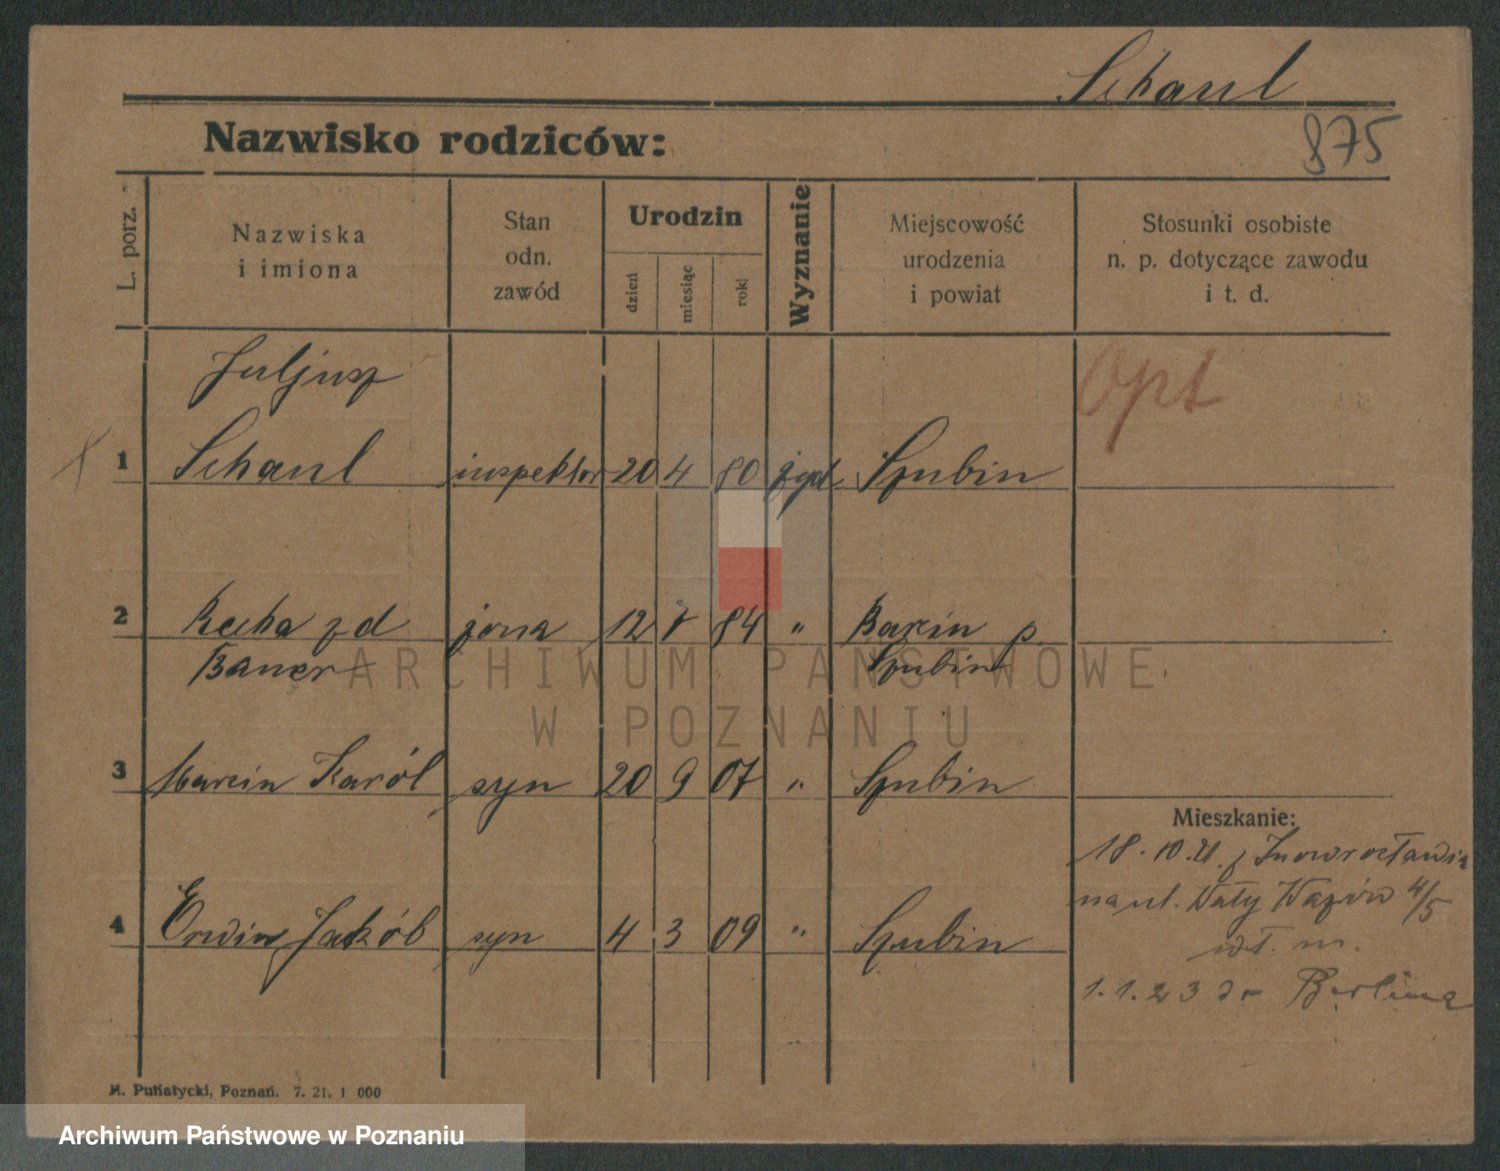 Schaul
Nazwisko rodziców:
875
L. porz.
Nazwiska
i imiona
Stan
odn.
zawód
Urodzin
dzień
miesiąc
rok
Wyznanie
Miejscowość
urodzenia
i powiat
Stosunki osobiste
n. p. dotyczące zawodu
i t. d.
Juljusz
Opt
1 Schaul inspektor 20 4 80 żyd. Szubin
2 Recha z d żona 12 84 " Barcin p
Bauer Szubin
ARCHIWUM PAŃSTWOWE
W POZNANIU
3 Marcin Karól syn 20 9 07 " Szubin
Mieszkanie:
18.10.21. z Inowrocławia
na ul. Wały Wazów 4/5
4 Erwin Jakób syn 4 3 09 " Szubin
wł. m.
1.1.23 do Berlina
M. Putiatycki, Poznań. 7. 21. 1 000
Archiwum Państwowe w Poznaniu